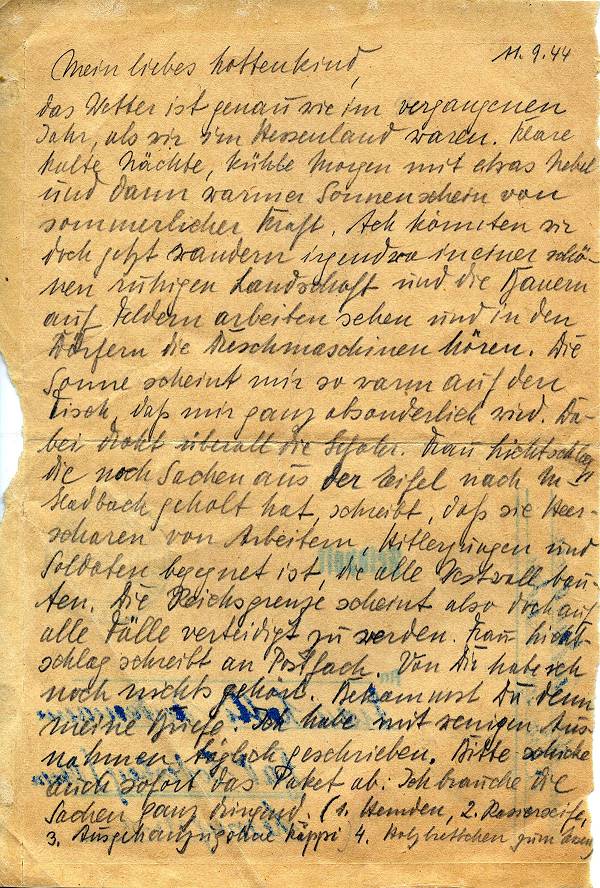 11.9.44
Mein liebes Lottenkind,
das Wetter ist genau wie im vergangenen
Jahr, als wir im Hessenland waren. Klare
kalte Nächte, kühle Morgen mit etwas Nebel
und dann warmer Sonnenschein von
sommerlicher Kraft. Ach könnten wir
doch jetzt wandern irgendwo in einer schö-
nen ruhigen Landschaft und die Bauern
auf Feldern arbeiten sehen und in den
Dörfern die Dreschmaschinen hören. Die
Sonne scheint mir so warm auf den
Tisch, daß mir ganz absonderlich wird. Da-
bei droht überall die Gefahr. Frau Lichtschlag,
die noch Sachen aus der Eifel nach M-
Gladbach geholt hat, schreibt, daß sie Heer-
scharen von Arbeitern, Hitlerjungen und
Soldaten begegnet ist, die alle Westwall bau-
ten. Die Reichsgrenze scheint also doch auf
alle Fälle verteidigt zu werden. Frau Licht-
schlag schreibt an Postfach. Von Dir habe ich
noch nichts gehört. Bekommst Du denn
meine Briefe. Ich habe mit wenigen Aus-
nahmen täglich geschrieben. Bitte schicke
auch sofort das Paket ab. Ich brauche die
Sachen ganz dringend. (1. Hemden, 2. Rasierseife,
3. Ausgehanzug ohne Käppi 4. Holzbrettchen zum